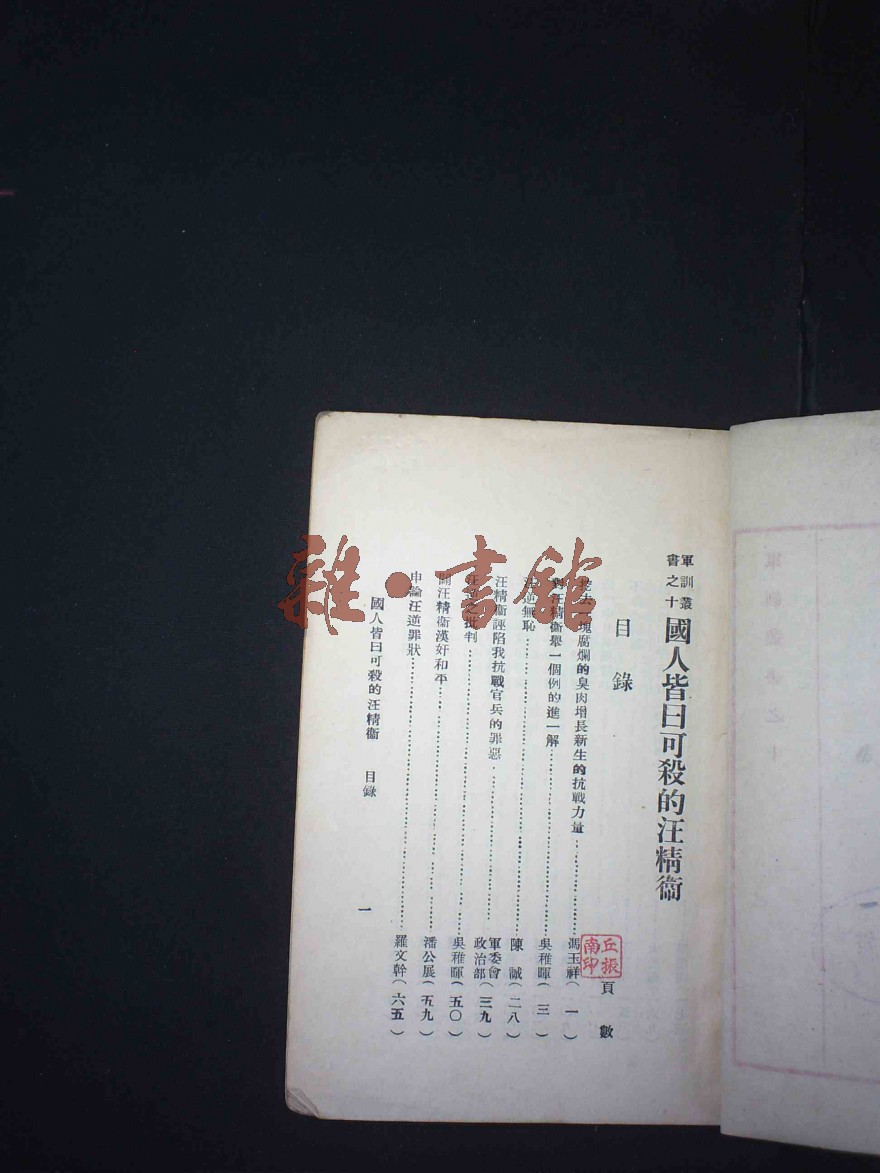 軍訓叢書之十
國人皆曰可殺的汪精衞
目錄
頁數
丘振南印
挖去一塊腐爛的臭肉增長新生的抗戰力量 馮玉祥(一)
對汪精衞舉一個例的進一解 吳稚暉(三)
汪逆無恥 陳誠(二八)
汪精衞誣陷我抗戰官兵的罪惡 軍委會政治部(三九)
之批判 吳稚暉(五〇)
汪精衞漢奸和平 潘公展(五九)
申論汪逆罪狀 羅文幹(六五)
國人皆曰可殺的汪精衞 目錄
一
雜·書館